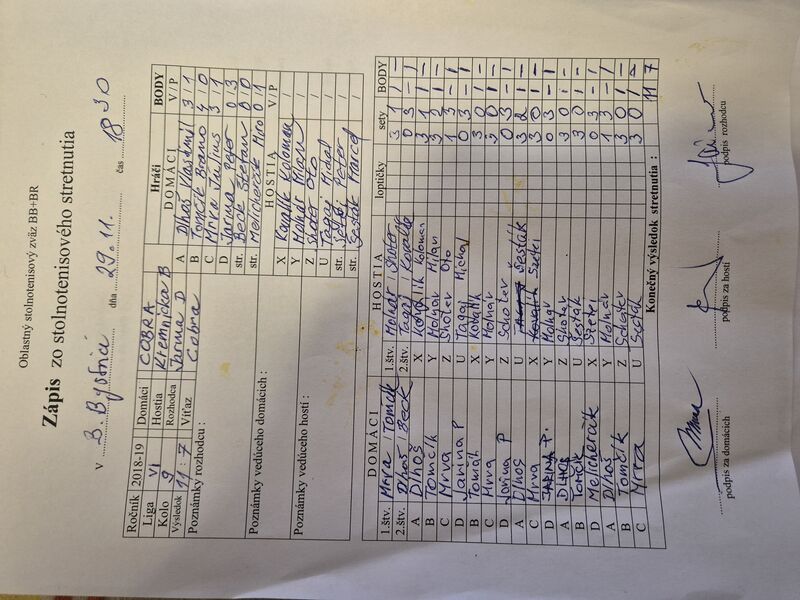 Oblastný stolnotenisový zväz BB+BR
Zápis zo stolnotenisového stretnutia
v B. Bystrici dňa 29.11. čas 18 30
Ročník 2018-19 Domáci COBRA
Liga VI Hostia Kremnička B
Kolo 9 Rozhodca Jarina D
Výsledok 11 : 7 Víťaz Cobra
Poznámky rozhodcu :
Poznámky vedúceho domácich :
Poznámky vedúceho hostí :
Hráči BODY
DOMÁCI V / P
A Dlhoš Vlastimil 3 / 1
B Tomčík Brano 4 / 0
C Mrva Július 3 / 1
D Jarina Peter 0 / 3
str. Beck Štefan 0 / 0
str. Melicherčík Miro 0 / 1
HOSTIA V / P
X Kovalík Koloman
Y Molnár Milan
Z Shoter Oto
U Tagaj Michal
str. Peter
str. Šesták Marcel
DOMÁCI HOSTIA loptičky sety BODY
1.štv. Mrva / Tomčík 1.štv. Molnár / Shoter 3 1 / –
2.štv. Dlhoš / Beck 2.štv. Tagaj / Kovalík 0 3 – /
A Dlhoš X Kovalík Koloman 3 1 / –
B Tomčík Y Molnár Milan 3 / –
C Mrva Z Shoter Oto
D Jarina P U Tagaj Michal 0 3 – /
B Tomčík X Kovalík 3 / –
C Mrva Y Molnár 3 0 / –
D Jarina P Z Schoter 0 3 – /
A Dlhoš U Šesták 3 2 / –
C Mrva X 3 0 / –
D JARINA P. Y Molnár 0 3 – /
A DLHOŠ Z Shotar 3 0 / –
B Tomčík U Šesták 3 0 / –
D Melicherčík X 0 3 – /
A Dlhoš Y Molnár 1 3 – /
B Tomčík Z Schoter 3 0 / –
C Mrva U Šesták 3 0 / –
Konečný výsledok stretnutia : 11 7
podpis za domácich podpis za hostí podpis rozhodcu